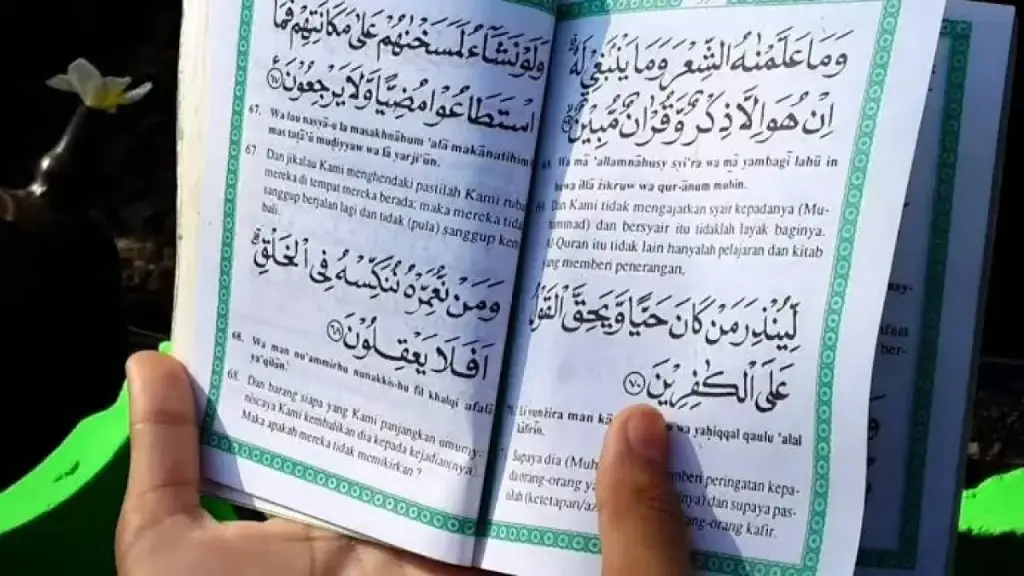 وَلَوْ نَشَآءُ لَمَسَخْنٰهُمْ عَلٰى مَكَانَتِهِمْ فَمَا
اسْتَطَاعُوْا مُضِيًّا وَّلَا يَرْجِعُوْنَ ۝٦٧
67. Wa lau nasyā-u la masakhnāhum 'alā makānatihim
mastaṭā'ū muḍiyyaw wa lā yarji'ūn.
67. Dan jikalau Kami menghendaki pastilah Kami ruba
mereka di tempat mereka berada; maka mereka tida
sanggup berjalan lagi dan tidak (pula) sanggup kem
bali.
وَمَنْ نُّعَمِّرْهُ نُنَكِّسْهُ فِى الْخَلْقِۗ
اَفَلَا يَعْقِلُوْنَ ۝٦٨
68. Wa man nu'ammirhu nunakkis-hu fil khalqi afalā
ya'qilūn.
68. Dan barang siapa yang Kami panjangkan umurny
niscaya Kami kembalikan dia kepada kejadian(nya).
Maka apakah mereka tidak memikirkan ?
وَمَا عَلَّمْنٰهُ الشِّعْرَ وَمَا يَنْۢبَغِيْ لَهٗۗ
اِنْ هُوَ اِلَّا ذِكْرٌ وَّقُرْاٰنٌ مُّبِيْنٌ
Wa mā 'allamnāhusy syi'ra wa mā yambagī lahū in
huwa illā żikruw wa qur-ānum mubīn.
Dan Kami tidak mengajarkan syair kepadanya (Mu-
ammad) dan bersyair itu tidaklah layak baginya.
Al-Quran itu tidak lain hanyalah pelajaran dan kitab
yang memberi penerangan,
لِّيُنْذِرَ مَنْ كَانَ حَيًّا وَّيَحِقَّ الْقَوْلُ
عَلَى الْكٰفِرِيْنَ ۝٧٠
Li yunżira man kā w wa yaḥiqqal qaulu 'alal
kāfirīn.
Supaya dia (Muh mberi peringatan kepa-
da orang-orang ya nya) dan supaya pas-
olah (ketetapan/az ng-orang kafir.